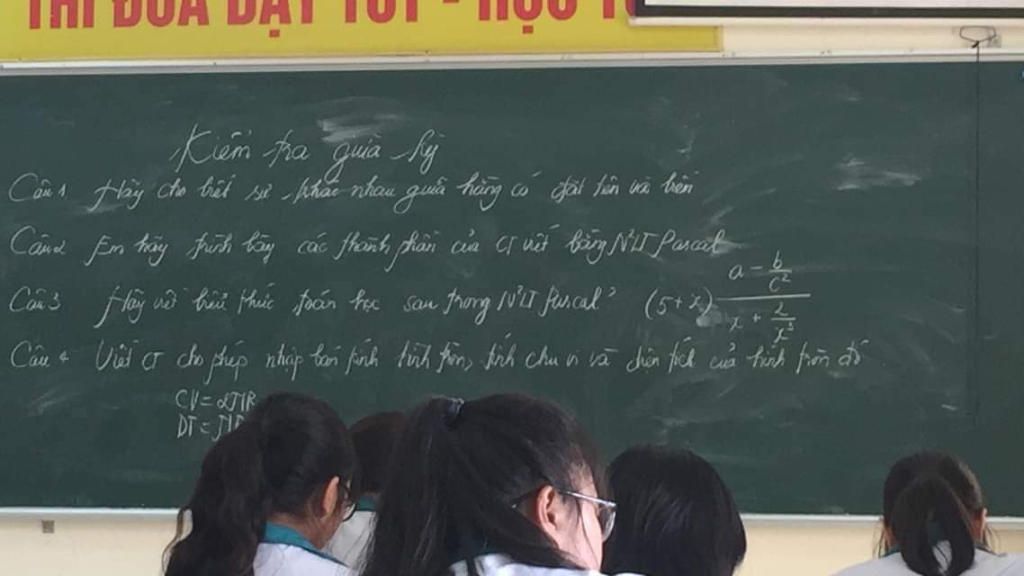 THI ĐUA DẠY TỐT - HỌC T
Kiểm tra giữa kỳ
Câu 1 Hãy cho biết sự khác nhau giữa hằng có đặt tên và biến
Câu 2 Em hãy trình bày các thành phần của CT viết bằng N²LT Pascal
Câu 3 Hãy viết biểu thức toán học sau trong N²LT Pascal? (5+x) (a - b/c²)/(x + 2/x²)
Câu 4 Viết CT cho phép nhập bán kính hình tròn, tính chu vi và diện tích của hình tròn đó
CV = 2πR
DT = π